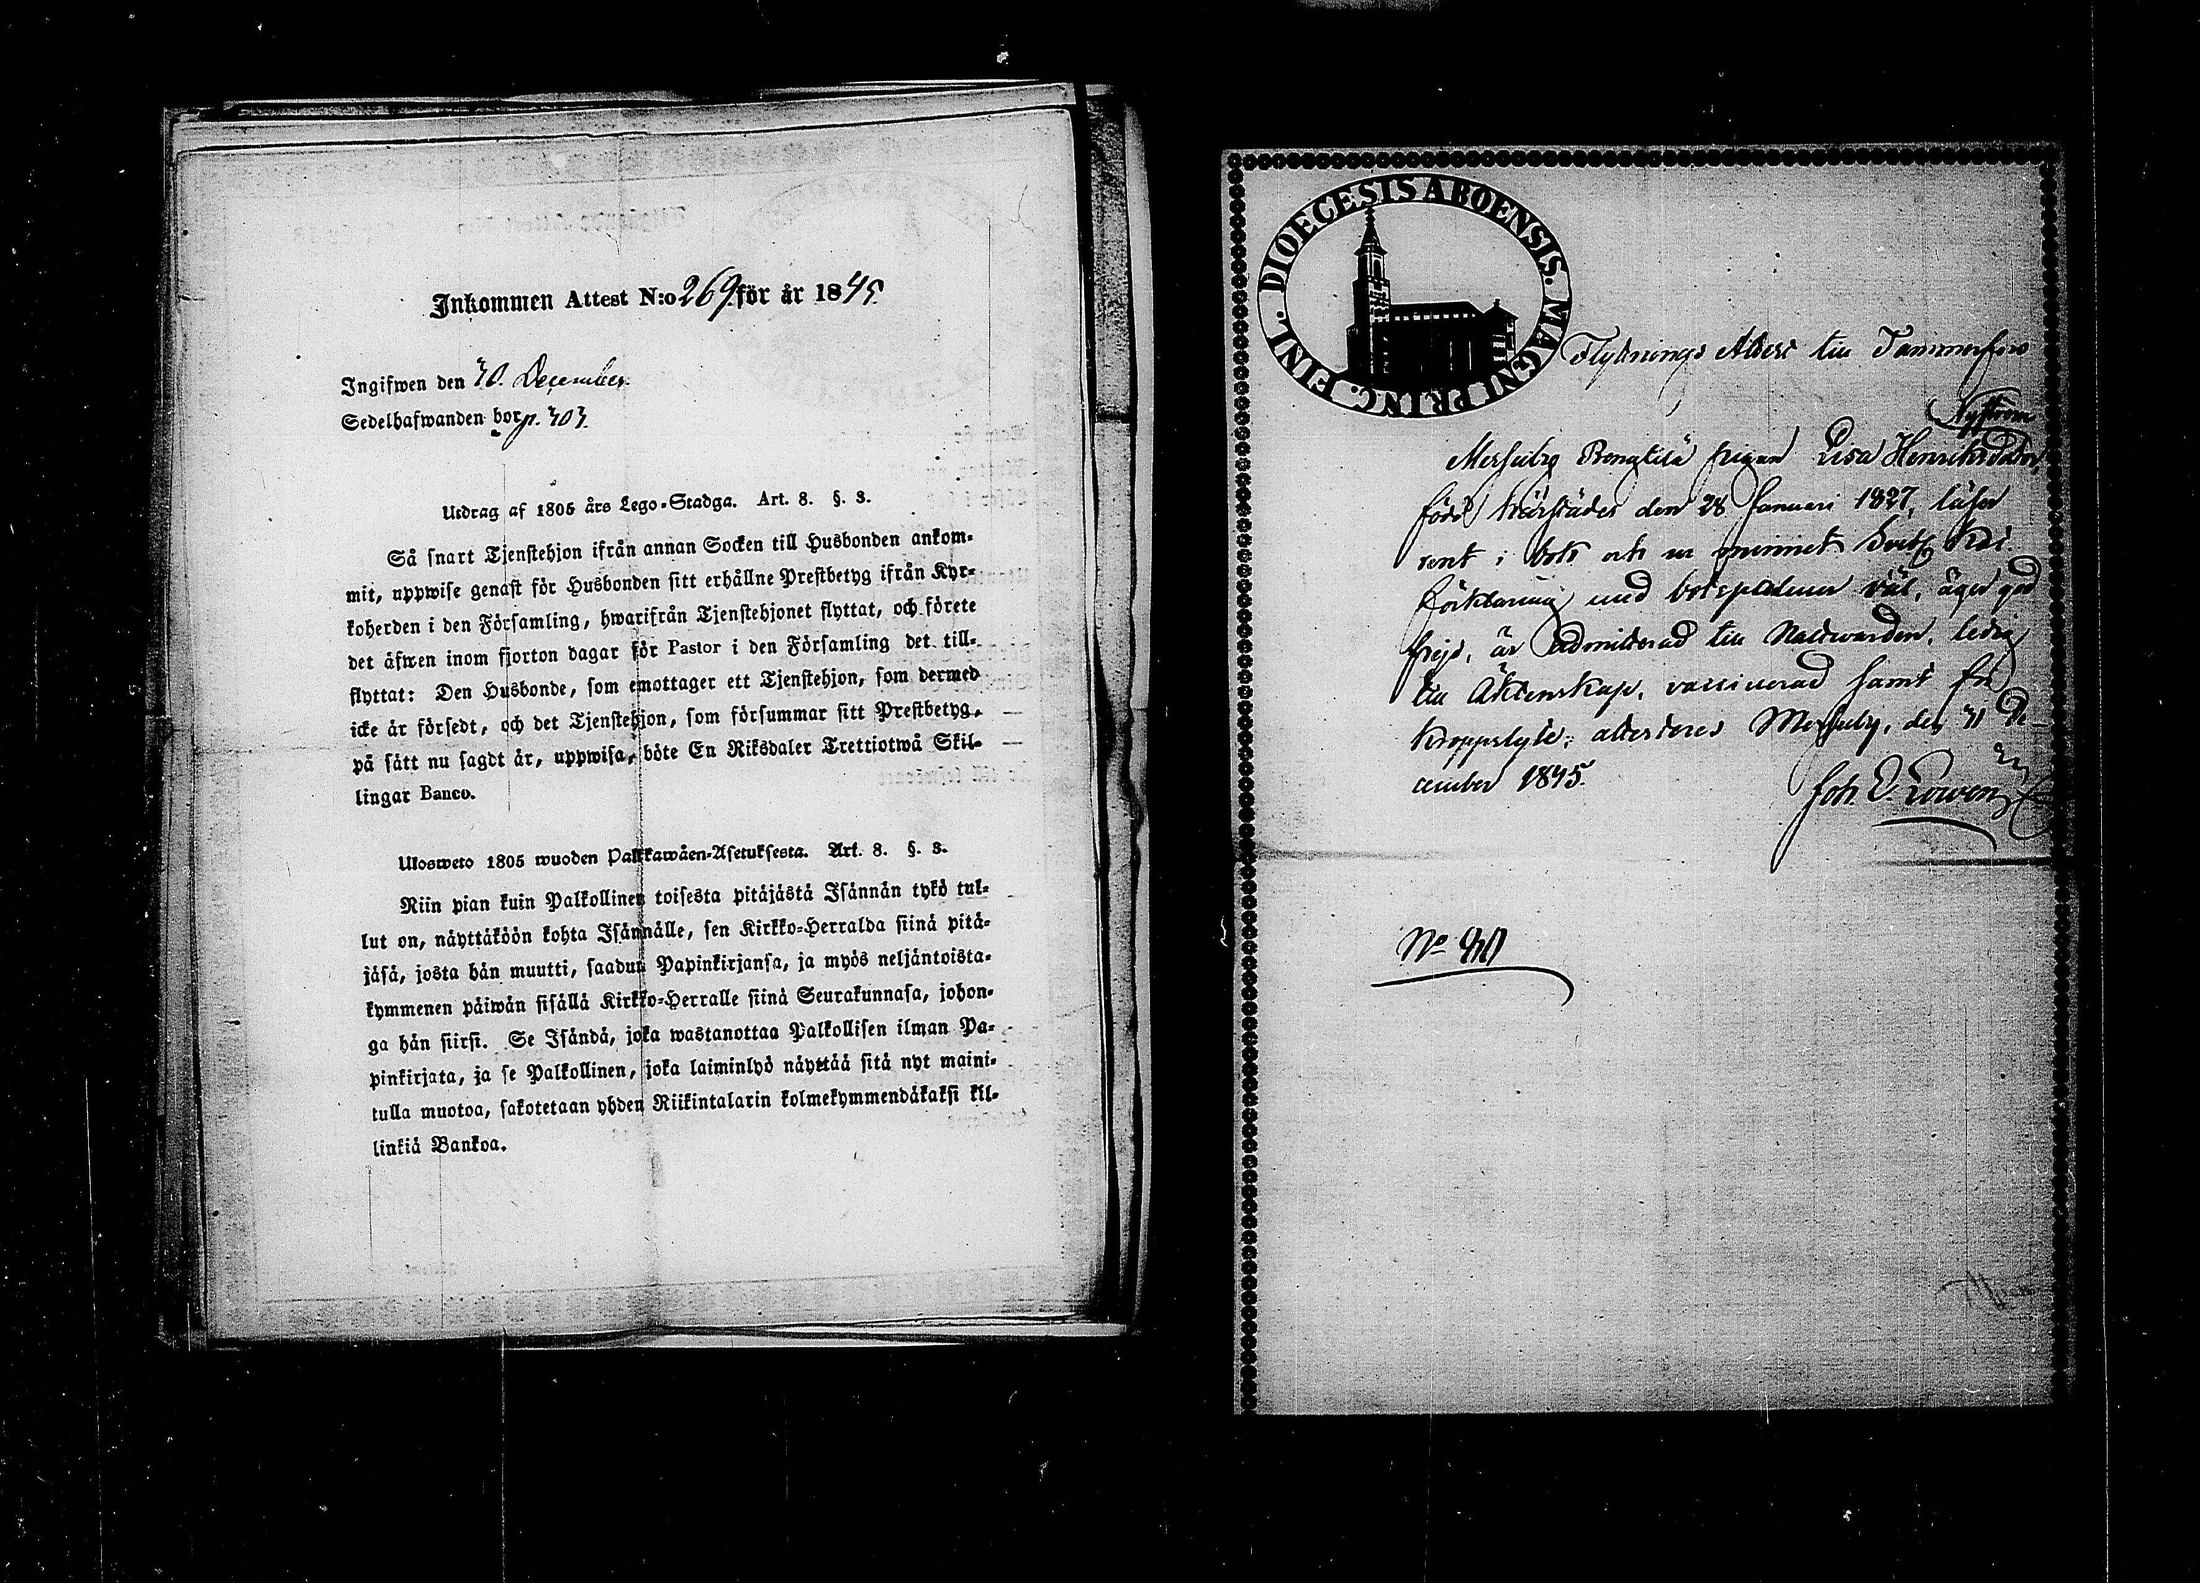 Inkommen Attest N:o 269. för år 1845.
Ingifwen den 30. December.
Sedelhafwanden bor p. 303.
Utdrag af 1805 års Lego-Stadga. Art. 8. §. 3.
Så snart Tjenstehjon ifrån annan Socken till Husbonden ankom-
mit, uppwise genast för Husbonden sitt erhållne Prestbetyg ifrån Kyr-
koherden i den Församling, hwarifrån Tjenstehjonet flyttat, och förete
det äfwen inom fjorton dagar för Pastor i den Församling det till-
flyttat: Den Husbonde, som emottager ett Tjenstehjon, som dermed
icke är försedt, och det Tjenstehjon, som försummar sitt Prestbetyg,
på sätt nu sagdt är, uppwisa, böte En Riksdaler Trettiotwå Skil-
lingar Banco.
Ulosweto 1805 wuoden Palkkawäen-Asetuksesta. Art. 8. §. 3.
Niin pian kuin Palkollinen toisesta pitäjästä Isännän tykö tul-
lut on, näyttäköön kohta Isännälle, sen Kirkko-Herralda siinä pitä-
jäsä, josta hän muutti, saadun Papinkirjansa, ja myös neljäntoista-
kymmenen päiwän sisällä Kirkko-Herralle siinä Seurakunnasa, johon-
ga hän siirsi. Se Isändä, joka wastanottaa Palkollisen ilman Pa-
pinkirjata, ja se Palkollinen, joka laiminlyö näyttää sitä nyt maini-
tulla muotoa, sakotetaan yhden Riikintalarin kolmekymmendäkaksi kil-
linkiä Bankoa.
DIOECESIS ABOENSIS. MAGNI PRINC. FINL.
Flyttnings Attest till Tammerfors
Nyström
Messuby Pigan Lisa Henriksdotter,
född härstädes den 28 Januari 1827, läser
rent i bok och ur minnet
förklaring med bokspråken väl, äger god
frejd, är admitterad till Nattvarden, ledig
till Äktenskap, vaccinerad samt fri
kroppslyte; attesteres Messuby, den 31 De-
cember 1845.
Joh. E.
No